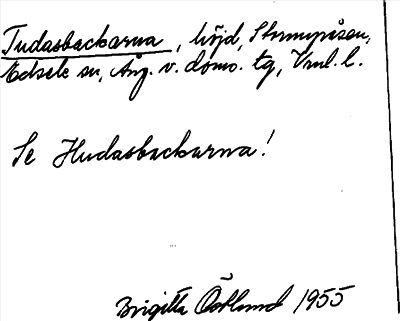 Tudasbackarna, höjd, Strumpåsen,
Edsele sn, Ång. v. doms. tg, Vnl. l.
Se Hudasbackarna!
Birgitta Östlund 1955